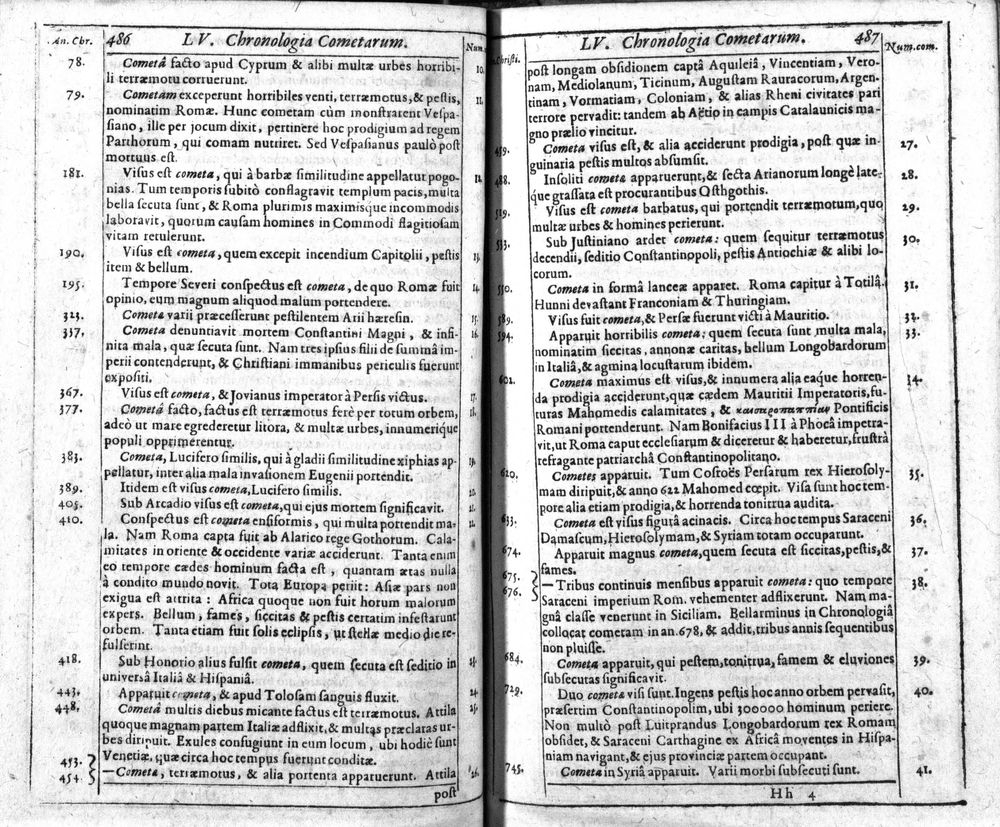 An. Chr. 486 LV. Chronologia Cometarum. Num.
78. Cometâ facto apud Cyprum & alibi multæ urbes horribi- 10.
li terræmotu corruerunt.
79. Cometam exceperunt horribiles venti, terræmotus, & pestis, 11.
nominatim Romæ. Hunc cometam cùm monstrarent Vespa-
siano, ille per jocum dixit, pertinere hoc prodigium ad regem
Parthorum, qui comam nutriret. Sed Vespasianus paulò post
mortuus est.
181. Visus est cometa, qui à barbæ similitudine appellatur pogo- 12.
nias. Tum temporis subitò conflagravit templum pacis, multa
bella secuta sunt, & Roma plurimis maximisque incommodis
laboravit, quorum causam homines in Commodi flagitiosam
vitam retulerunt.
190. Visus est cometa, quem excepit incendium Capitolii, pestis 13.
item & bellum.
195. Tempore Severi conspectus est cometa, de quo Romæ fuit 14.
opinio, eum magnum aliquod malum portendere.
323. Cometæ varii præcesserunt pestilentem Arii hæresin. 15.
337. Cometa denuntiavit mortem Constantini Magni, & infi- 16.
nita mala, quæ secuta sunt. Nam tres ipsius filii de summâ im-
perii contenderunt, & Christiani immanibus periculis fuerunt
expositi.
367. Visus est cometa, & Jovianus imperator à Persis victus. 17.
377. Cometâ facto, factus est terræmotus ferè per totum orbem,
adeò ut mare egrederetur litora, & multæ urbes, innumerique
populi opprimerentur.
383. Cometa, Lucifero similis, qui à gladii similitudine xiphias ap-
pellatur, inter alia mala invasionem Eugenii portendit.
389. Itidem est visus cometa, Lucifero similis.
405. Sub Arcadio visus est cometa, qui ejus mortem significavit.
410. Conspectus est cometa ensiformis, qui multa portendit ma-
la. Nam Roma capta fuit ab Alarico rege Gothorum. Cala-
mitates in oriente & occidente variæ acciderunt. Tanta enim
eo tempore cædes hominum facta est, quantam ætas nulla
à condito mundo novit. Tota Europa periit: Asiæ pars non
exigua est attrita: Africa quoque non fuit horum malorum
expers. Bellum, fames, siccitas & pestis certatim infestarunt
orbem. Tanta etiam fuit solis eclipsis, ut stellæ medio die re-
fulserint.
418. Sub Honorio alius fulsit cometa, quem secuta est seditio in
universâ Italiâ & Hispaniâ.
443. Apparuit cometa, & apud Tolosam sanguis fluxit. 24.
448. Cometâ multis diebus micante factus est terræmotus. Attila 25.
quoque magnam partem Italiæ adflixit, & multas præclaras ur-
bes diripuit. Exules confugiunt in eum locum, ubi hodie sunt
453. Venetiæ, quæ circa hoc tempus fuerunt conditæ.
454. —Cometa, terræmotus, & alia portenta apparuerunt. Attila 26.
post
Christi. LV. Chronologia Cometarum. 487 Num. com.
post longam obsidionem captâ Aquileiâ, Vincentiam, Vero-
nam, Mediolanum, Ticinum, Augustam Rauracorum, Argen-
tinam, Vormatiam, Coloniam, & alias Rheni civitates pari
terrore pervadit: tandem ab Aetio in campis Catalaunicis ma-
gno prælio vincitur.
459. Cometa visus est, & alia acciderunt prodigia, post quæ in- 27.
guinaria pestis multos absumsit.
488. Insoliti cometæ apparuerunt, & secta Arianorum longè late- 28.
que grassata est procurantibus Osthgothis.
519. Visus est cometa barbatus, qui portendit terræmotum, quo 29.
multæ urbes & homines perierunt.
533. Sub Justiniano ardet cometa: quem sequitur terræmotus 30.
decendii, seditio Constantinopoli, pestis Antiochiæ & alibi lo-
corum.
550. Cometa in formâ lanceæ apparet. Roma capitur à Totilâ. 31.
Hunni devastant Franconiam & Thuringiam.
589. Visus fuit cometa, & Persæ fuerunt victi à Mauritio. 32.
594. Apparuit horribilis cometa: quem secuta sunt multa mala, 33.
nominatim siccitas, annonæ caritas, bellum Longobardorum
in Italiâ, & agmina locustarum ibidem.
602. Cometa maximus est visus, & innumera alia eaque horren- 34.
da prodigia acciderunt, quæ cædem Mauritii Imperatoris, fu-
turas Mahomedis calamitates, & Pontificis
Romani portenderunt. Nam Bonifacius III à Phocâ impetra-
vit, ut Roma caput ecclesiarum & diceretur & haberetur, frustrà
refragante patriarchâ Constantinopolitano.
620. Cometes apparuit. Tum Cosroës Persarum rex Hierosoly- 35.
mam diripuit, & anno 622 Mahomed cœpit. Visa sunt hoc tem-
pore alia etiam prodigia, & horrenda tonitrua audita.
633. Cometa est visus figurâ acinacis. Circa hoc tempus Saraceni 36.
Damascum, Hierosolymam, & Syriam totam occuparunt.
674. Apparuit magnus cometa, quem secuta est siccitas, pestis, & 37.
fames.
675. —Tribus continuis mensibus apparuit cometa: quo tempore 38.
676. Saraceni imperium Rom. vehementer adflixerunt. Nam ma-
gnâ classe venerunt in Siciliam. Bellarminus in Chronologiâ
collocat cometam in an. 678, & addit, tribus annis sequentibus
non pluisse.
684. Cometa apparuit, qui pestem, tonitrua, famem & eluviones 39.
subsecutas significavit.
729. Duo cometæ visi sunt. Ingens pestis hoc anno orbem pervasit, 40.
præsertim Constantinopolim, ubi 300000 hominum periere.
Non multò post Luitprandus Longobardorum rex Romam
obsidet, & Saraceni Carthagine ex Africâ moventes in Hispa-
niam navigant, & ejus provinciæ partem occupant.
745. Cometa in Syriâ apparuit. Varii morbi subsecuti sunt. 41.
Hh 4